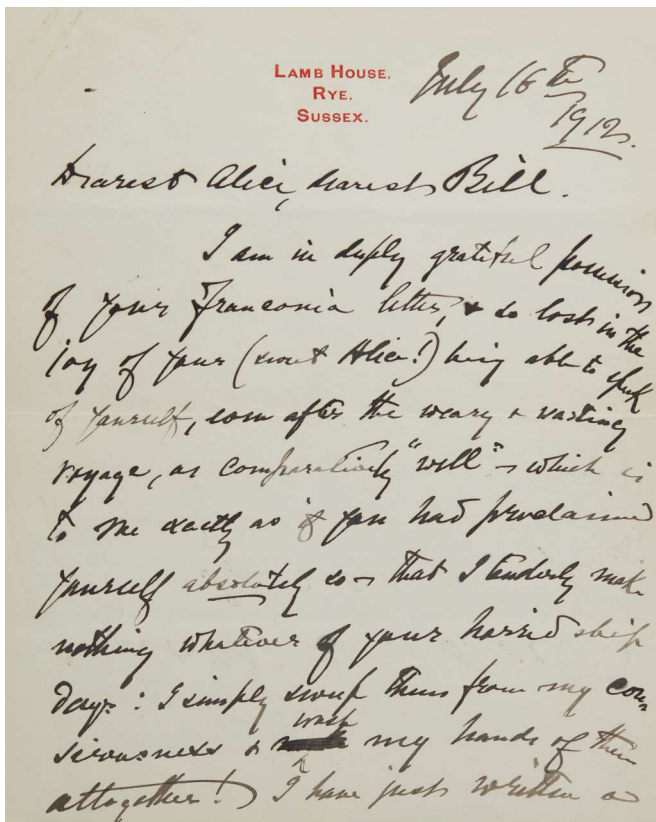 LAMB HOUSE,
RYE,
SUSSEX.
July 16th
1912.
Dearest Alice, dearest Bill.
I am in deeply grateful possession
of your Franconia letter, & so lost in the
joy of your (sweet Alice!) being able to speak
of yourself, even after the weary & wasting
voyage, as comparatively "well" – which is
to me exactly as if you had proclaimed
yourself absolutely so – that I tenderly make
nothing whatever of your horrid ship
days: I simply sweep them from my con-
sciousness & wash my hands of them
altogether!) I have just written a